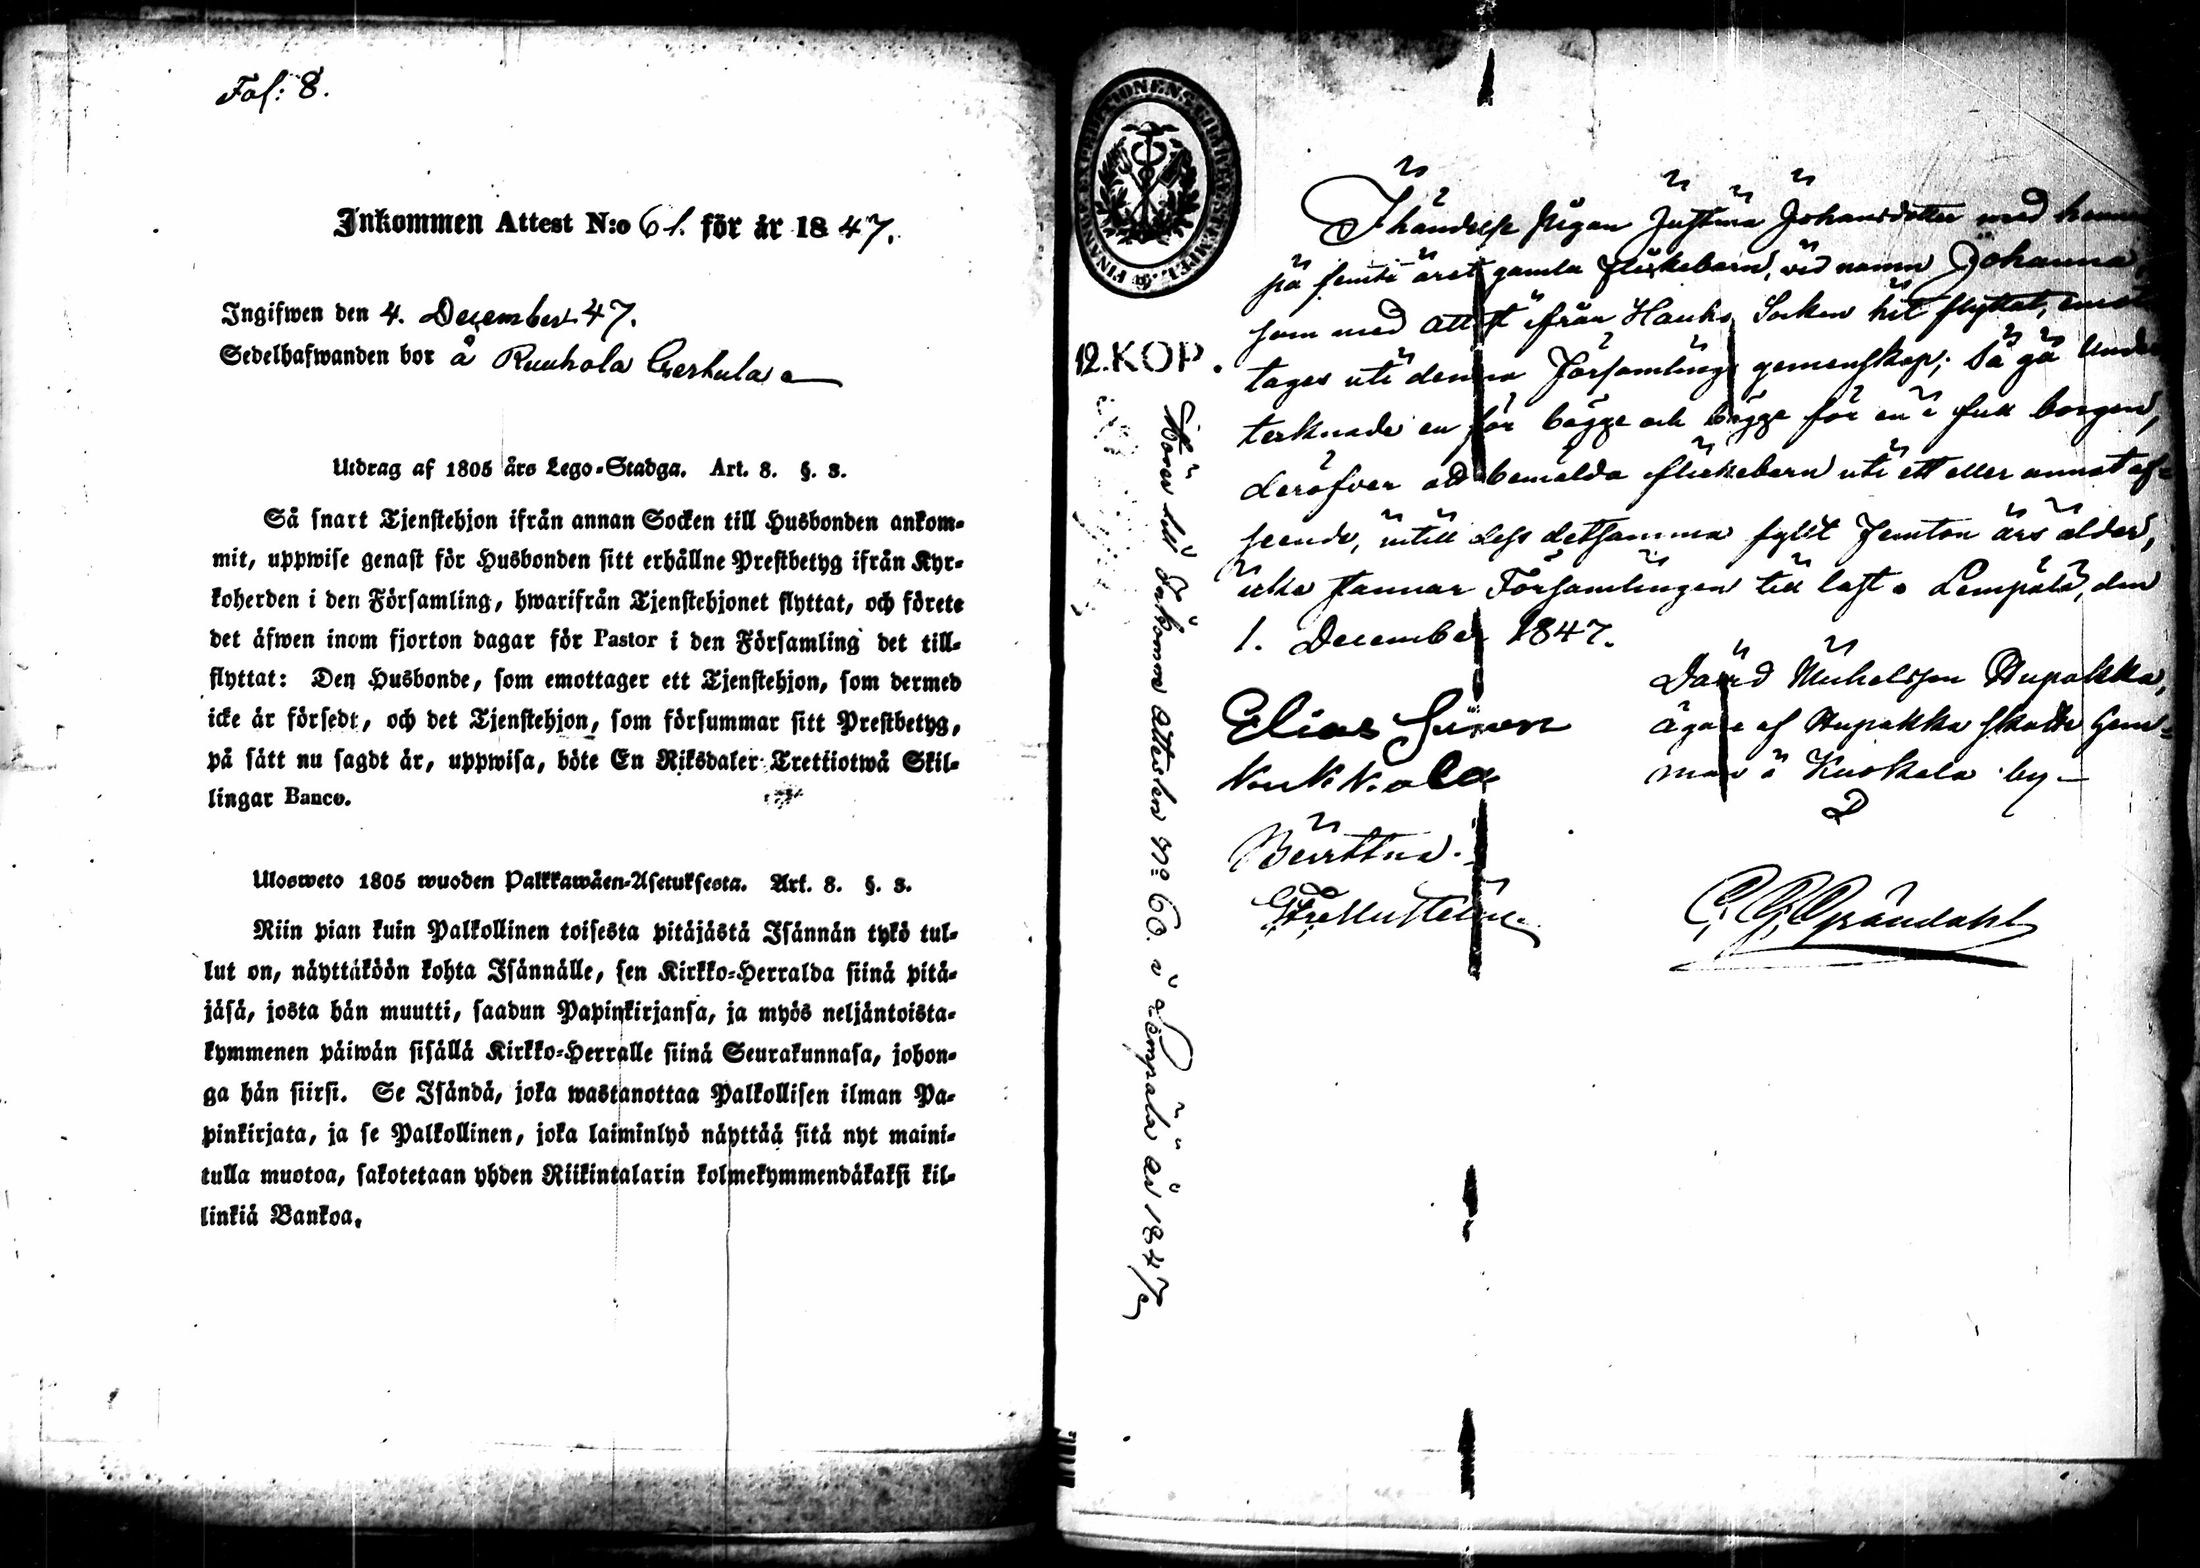 Fol: 8.
Inkommen Attest N:o 61. för år 1847.
Ingifwen den 4. December 47.
Sedelhafwanden bor å Ruuhola
Utdrag af 1805 års Lego-Stadga. Art. 8. §. 3.
Så snart Tjenstehjon ifrån annan Socken till Husbonden ankom-
mit, uppwise genast för Husbonden sitt erhållne Prestbetyg ifrån Kyr-
koherden i den Församling, hwarifrån Tjenstehjonet flyttat, och förete
det äfwen inom fjorton dagar för Pastor i den Församling det till-
flyttat: Den Husbonde, som emottager ett Tjenstehjon, som dermed
icke är försedt, och det Tjenstehjon, som försummar sitt Prestbetyg,
på sätt nu sagdt är, uppwisa, böte En Riksdaler Trettiotwå Skil-
lingar Banco.
Ulosweto 1805 wuoden Palkkawäen-Asetuksesta. Art. 8. §. 3.
Niin pian kuin Palkollinen toisesta pitäjästä Isännän tykö tul-
lut on, näyttäköön kohta Isännälle, sen Kirkko-Herralda siinä pitä-
jäsä, josta hän muutti, saadun Papinkirjansa, ja myös neljäntoista-
kymmenen päiwän sisällä Kirkko-Herralle siinä Seurakunnasa, johon-
ga hän siirsi. Se Isändä, joka wastanottaa Palkollisen ilman Pa-
pinkirjata, ja se Palkollinen, joka laiminlyö näyttää sitä nyt maini-
tulla muotoa, sakotetaan yhden Riikintalarin kolmekymmendäkaksi kil-
linkiä Bankoa.
FINANCE EXPEDITIONENS
12. KOP.
Hörer till Inkomne Attesten No 60. i Lempälä år 1847
I händelse Pigan Justina Johansdotter med hennes
på femte året gamla flickebarn, vid namn Johanna,
som med attest ifrån Hauho Socken hit flyttat,
tages uti denna Församlings gemenskap; Så gå Under
teknade en för bägge och bägge för en i full borgen,
deröfver at bemälda flickebarn uti ett eller annat af-
seende, intill dess detsamma fyllt femton års ålder,
icke stannar Församlingen till last. Lempälä, den
1. December 1847.
Elias Simon
Kukkola
David Michelsson Hupakka,
ägare af Hupakka skatte hem-
man i Kuokala by